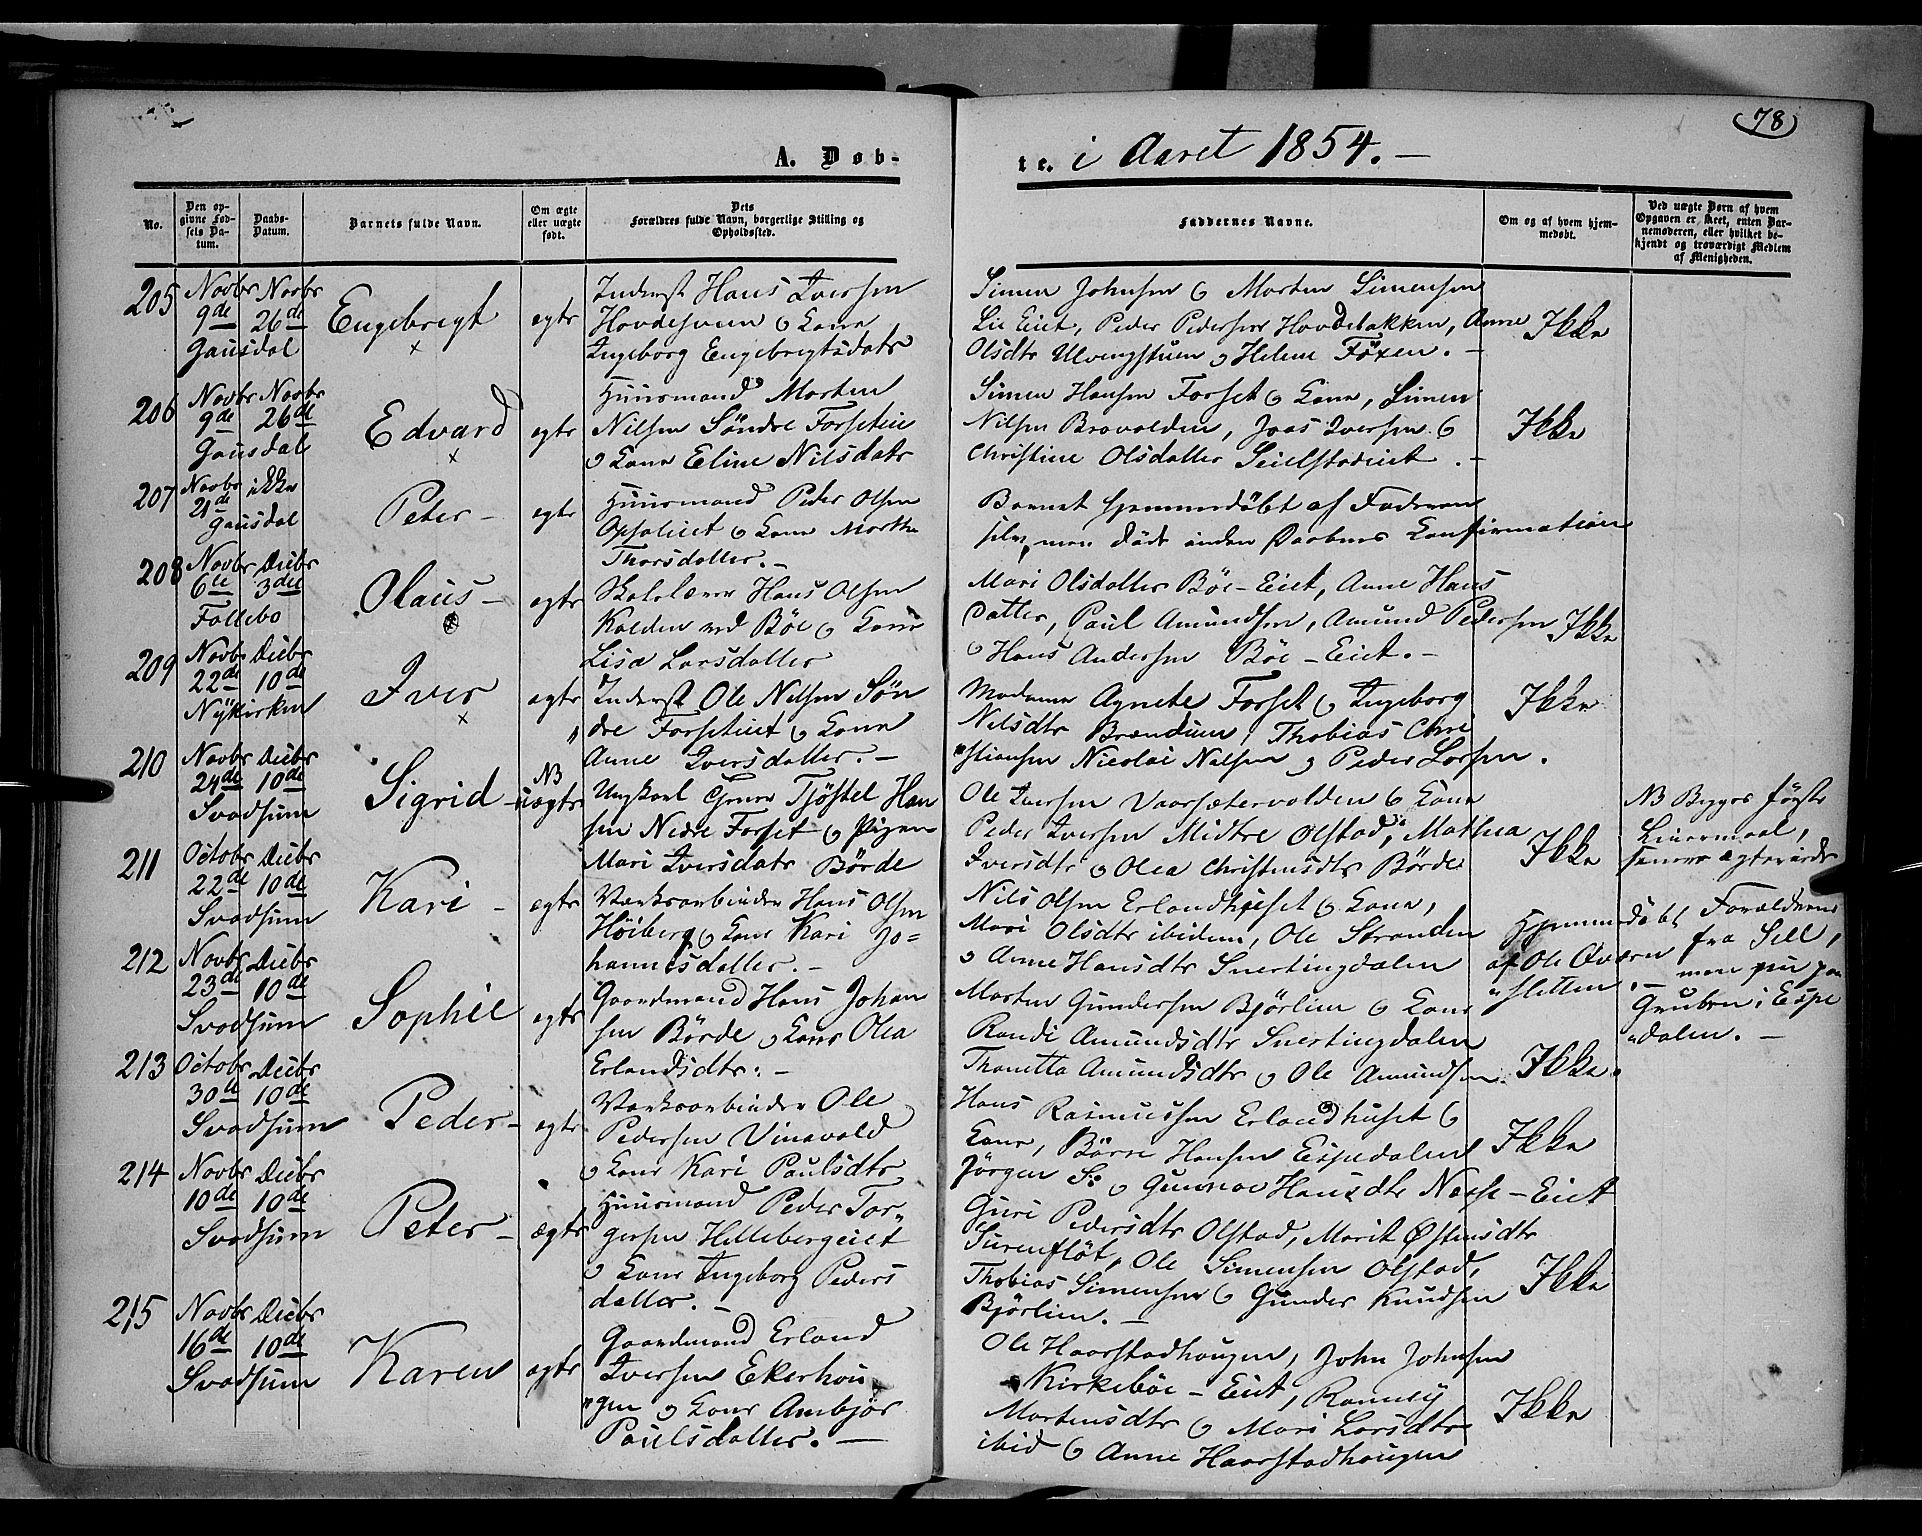 78
A. Døb-
te. i Aaret 1854. —
No.
Den op-
givne Fød-
sels Da-
tum.
Daabs-
Datum.
Barnets fulde Navn.
Om ægte
eller uægte
født.
Dets
Forældres fulde Navn, borgerlige Stilling og
Opholdssted.
Faddernes Navne.
Om og af hvem hjem-
medøbt.
Ved uægte Børn af hvem
Opgaven er skeet, enten Bar-
nemoderen, eller hvilket be-
kjendt og troværdigt Medlem
af Menigheden.
205
Novbr
9de
Gausdal
Novbr
26de
Engebregt
egte
Inderst Hans Iversen
Hovdesveen & Kone
Ingeborg Engebregtsdatr
Simen Johnsen & Morten Simensen
Lie Eiet, Peder Pedersen Hovdebakken, Anne
Olsdtr Ulvengstuen & Helene Föxen. —
Ikke
206
Novbr
9de
Gausdal
Novbr
26de
Edvard
egte
Huusmand Morten
Nilsen Söndre Forseteie
& Kone Eline Nilsdatr
Simen Hansen Forset & Kone, Simen
Nilsen Brovolden, Joas Iversen &
Christine Olsdatter Seielstadeiet. —
Ikke
207
Novbr
21de
Gausdal
ikke
Peter —
egte
Huusmand Peder Olsen
Opsaleiet & Kone Marthe
Thorsdatter. —
Barnet hjemmedöbt af Faderen
selv, men döde inden Daabens Confirmation
208
Novbr
6te
Follebo
Decbr
3die
Olaus —
egte
Skolelærer Hans Olsen
Kalden ved Böe & Kone
Lisa Larsdatter
Mari Olsdatter Böe-Eiet, Anne Hans
Datter, Paul Amundsen, Amund Pedersen
& Hans Andersen Böe-Eiet. —
Ikke
209
Novbr
22de
Nÿkirken
Decbr
10de
Iver
egte
Inderst Ole Nilsen Sön
"dre Forseteiet & Kone
Anne Iversdatter. —
Madame Agnete Forset & Ingeborg
Nilsdtr Brændeien, Thobias Chri
"stiansen Nicolai Nilsen & Peder Larsen.
Ikke
210
Novbr
24de
Svadsum
Decbr
10de
Sigrid —
NB
uægte
Ungkarl Tjöstel Han
sen Nedre Forset & Pigen
Mari Iversdatr Börde
Ole Iversen Vaarsætervolden & Kone
Peder Iversen Midtre Olstad, Mathea
Iversdtr & Olea Christensdtr Börde
Ikke
NB Begges förste
Leiermaal,
senere egteviede
211
Octobr
22de
Svadsum
Decbr
10de
Kari —
egte
Værksarbeider Hans Olsen
Höiberg & Kone Kari Jo-
hannesdatter. —
Nils Olsen Erlandhuset & Kone,
Mari Olsdtr ibidem, Ole Stranden
& Anne Hansdtr Svertingdalen
Hjemmedöbt
af Ole Qværn
"sletten. —
Forældrene
fra Sell,
men nu paa
Gruben i Espe
"dalen. —
212
Novbr
23de
Svadsum
Decbr
10de
Sophie
egte
Gaardmand Hans Johan
sen Börde & Kone Olea
Erlandsdtr. —
Morten Gundersen Bjørlien & Kone
Randi Amundsdtr Svertingdalen
Thonetta Amundsdtr & Ole Amundsen.
Ikke.
213
Octobr
30te
Svadsum
Decbr
10de
Peder —
egte
Værksarbeider Ole
Pedersen Vinavold
& Kone Kari Paulsdtr
Hans Rasmussen Erlandhuset &
Kone, Börre Hansen Espedalen
Jörgen S: & Gunnor Hansdtr Næsse-Eiet
Ikke
214
Novbr
10de
Svadsum
Decbr
10de
Peter —
ægte
Huusmand Peder Tor-
gersen Hellebergeiet
& Kone Ingeborg Peders
datter. —
Guri Pedersdtr Olstad, Marit Østensdtr
Surenflöt, Ole Simensen Olstad,
Thobias Simensen & Gunder Knudsen
Bjørlien. —
Ikke
215
Novbr
16de
Svadsum
Decbr
10de
Karen
egte
Gaardmand Erland
Iversen Ekerhou
"gen & Kone Ambjør
Paulsdatter. —
Ole Haarstadhougen, John Johnsen
Kirkeböe-Eiet, Rönnoy
Mortensdtr & Mari Larsdtr
ibid & Anne Haarstadhougen
Ikke